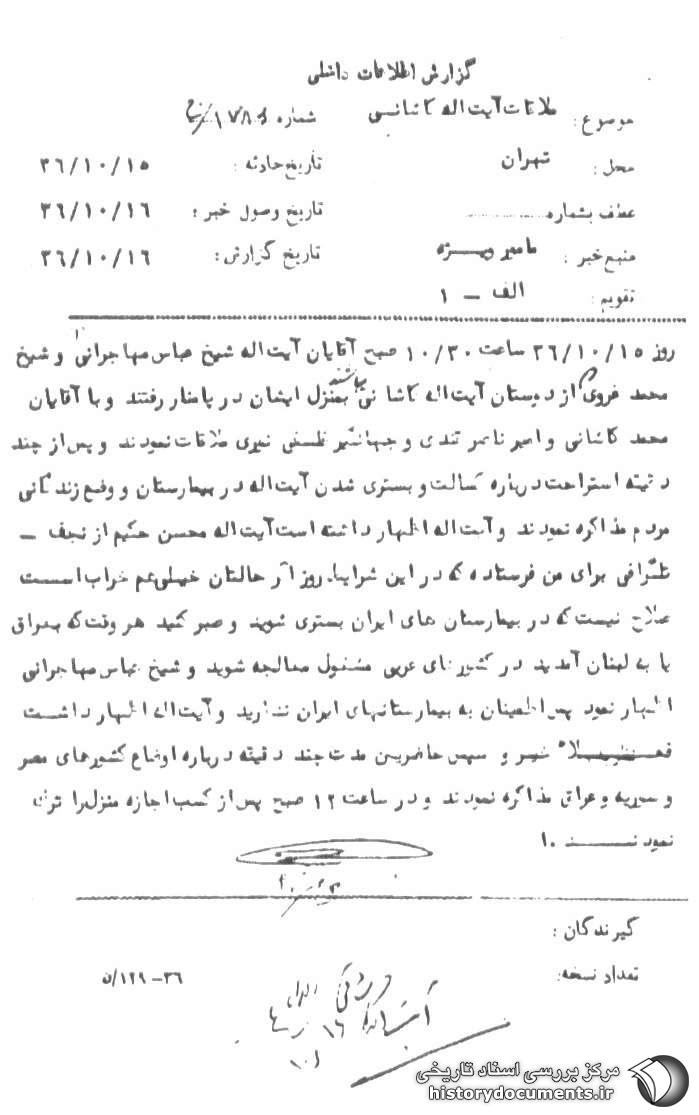 گزارش اطلاعات داخلی
موضوع : ملاقات آیت‌اله کاشانی شماره
محل : تهران تاریخ حادثه : ۳۶/۱۰/۱۵
عطف بشماره تاریخ وصول خبر : ۳۶/۱۰/۱۶
منبع خبر : مامور ویژه تاریخ گزارش : ۳۶/۱۰/۱۶
تقویم : الف - ۱
روز ۳۶/۱۰/۱۵ ساعت ۱۰/۳۰ صبح آقایان آیت‌اله شیخ عباس مهاجرانی و شیخ
محمد از دوستان آیت‌اله کاشانی میباشند بمنزل ایشان در پامنار رفتند و با آقایان
محمد کاشانی و امیر ناصر قندی و جهانگیر فلسفی نصیری ملاقات نمودند و پس از چند
دقیقه استراحت درباره کسالت و بستری شدن آیت‌اله در بیمارستان و وضع زندگانی
مردم مذاکره نمودند و آیت‌اله اظهار داشته است آیت‌اله محسن حکیم از نجف -
تلگرافی برای من فرستاده که در این شرایط روز اگر حالتان خیلی هم خراب است
صلاح نیست که در بیمارستان های ایران بستری شوید و صبر کنید هر وقت که بعراق
یا به لبنان آمدید در کشورهای عربی مشغول معالجه شوید و شیخ عباس مهاجرانی
اظهار نمود پس اطمینان به بیمارستانهای ایران ندارید و آیت‌اله اظهار داشت
خیر و سپس حاضرین مدت چند دقیقه درباره اوضاع کشورهای مصر
و سوریه و عراق مذاکره نمودند و در ساعت ۱۲ صبح پس از کسب اجازه منزل را ترک
نمودنــد .۱
گیرندگان :
تعداد نسخه: ۳۶-۱۲۹/ن
مرکز بررسی اسناد تاریخی
historydocuments.ir